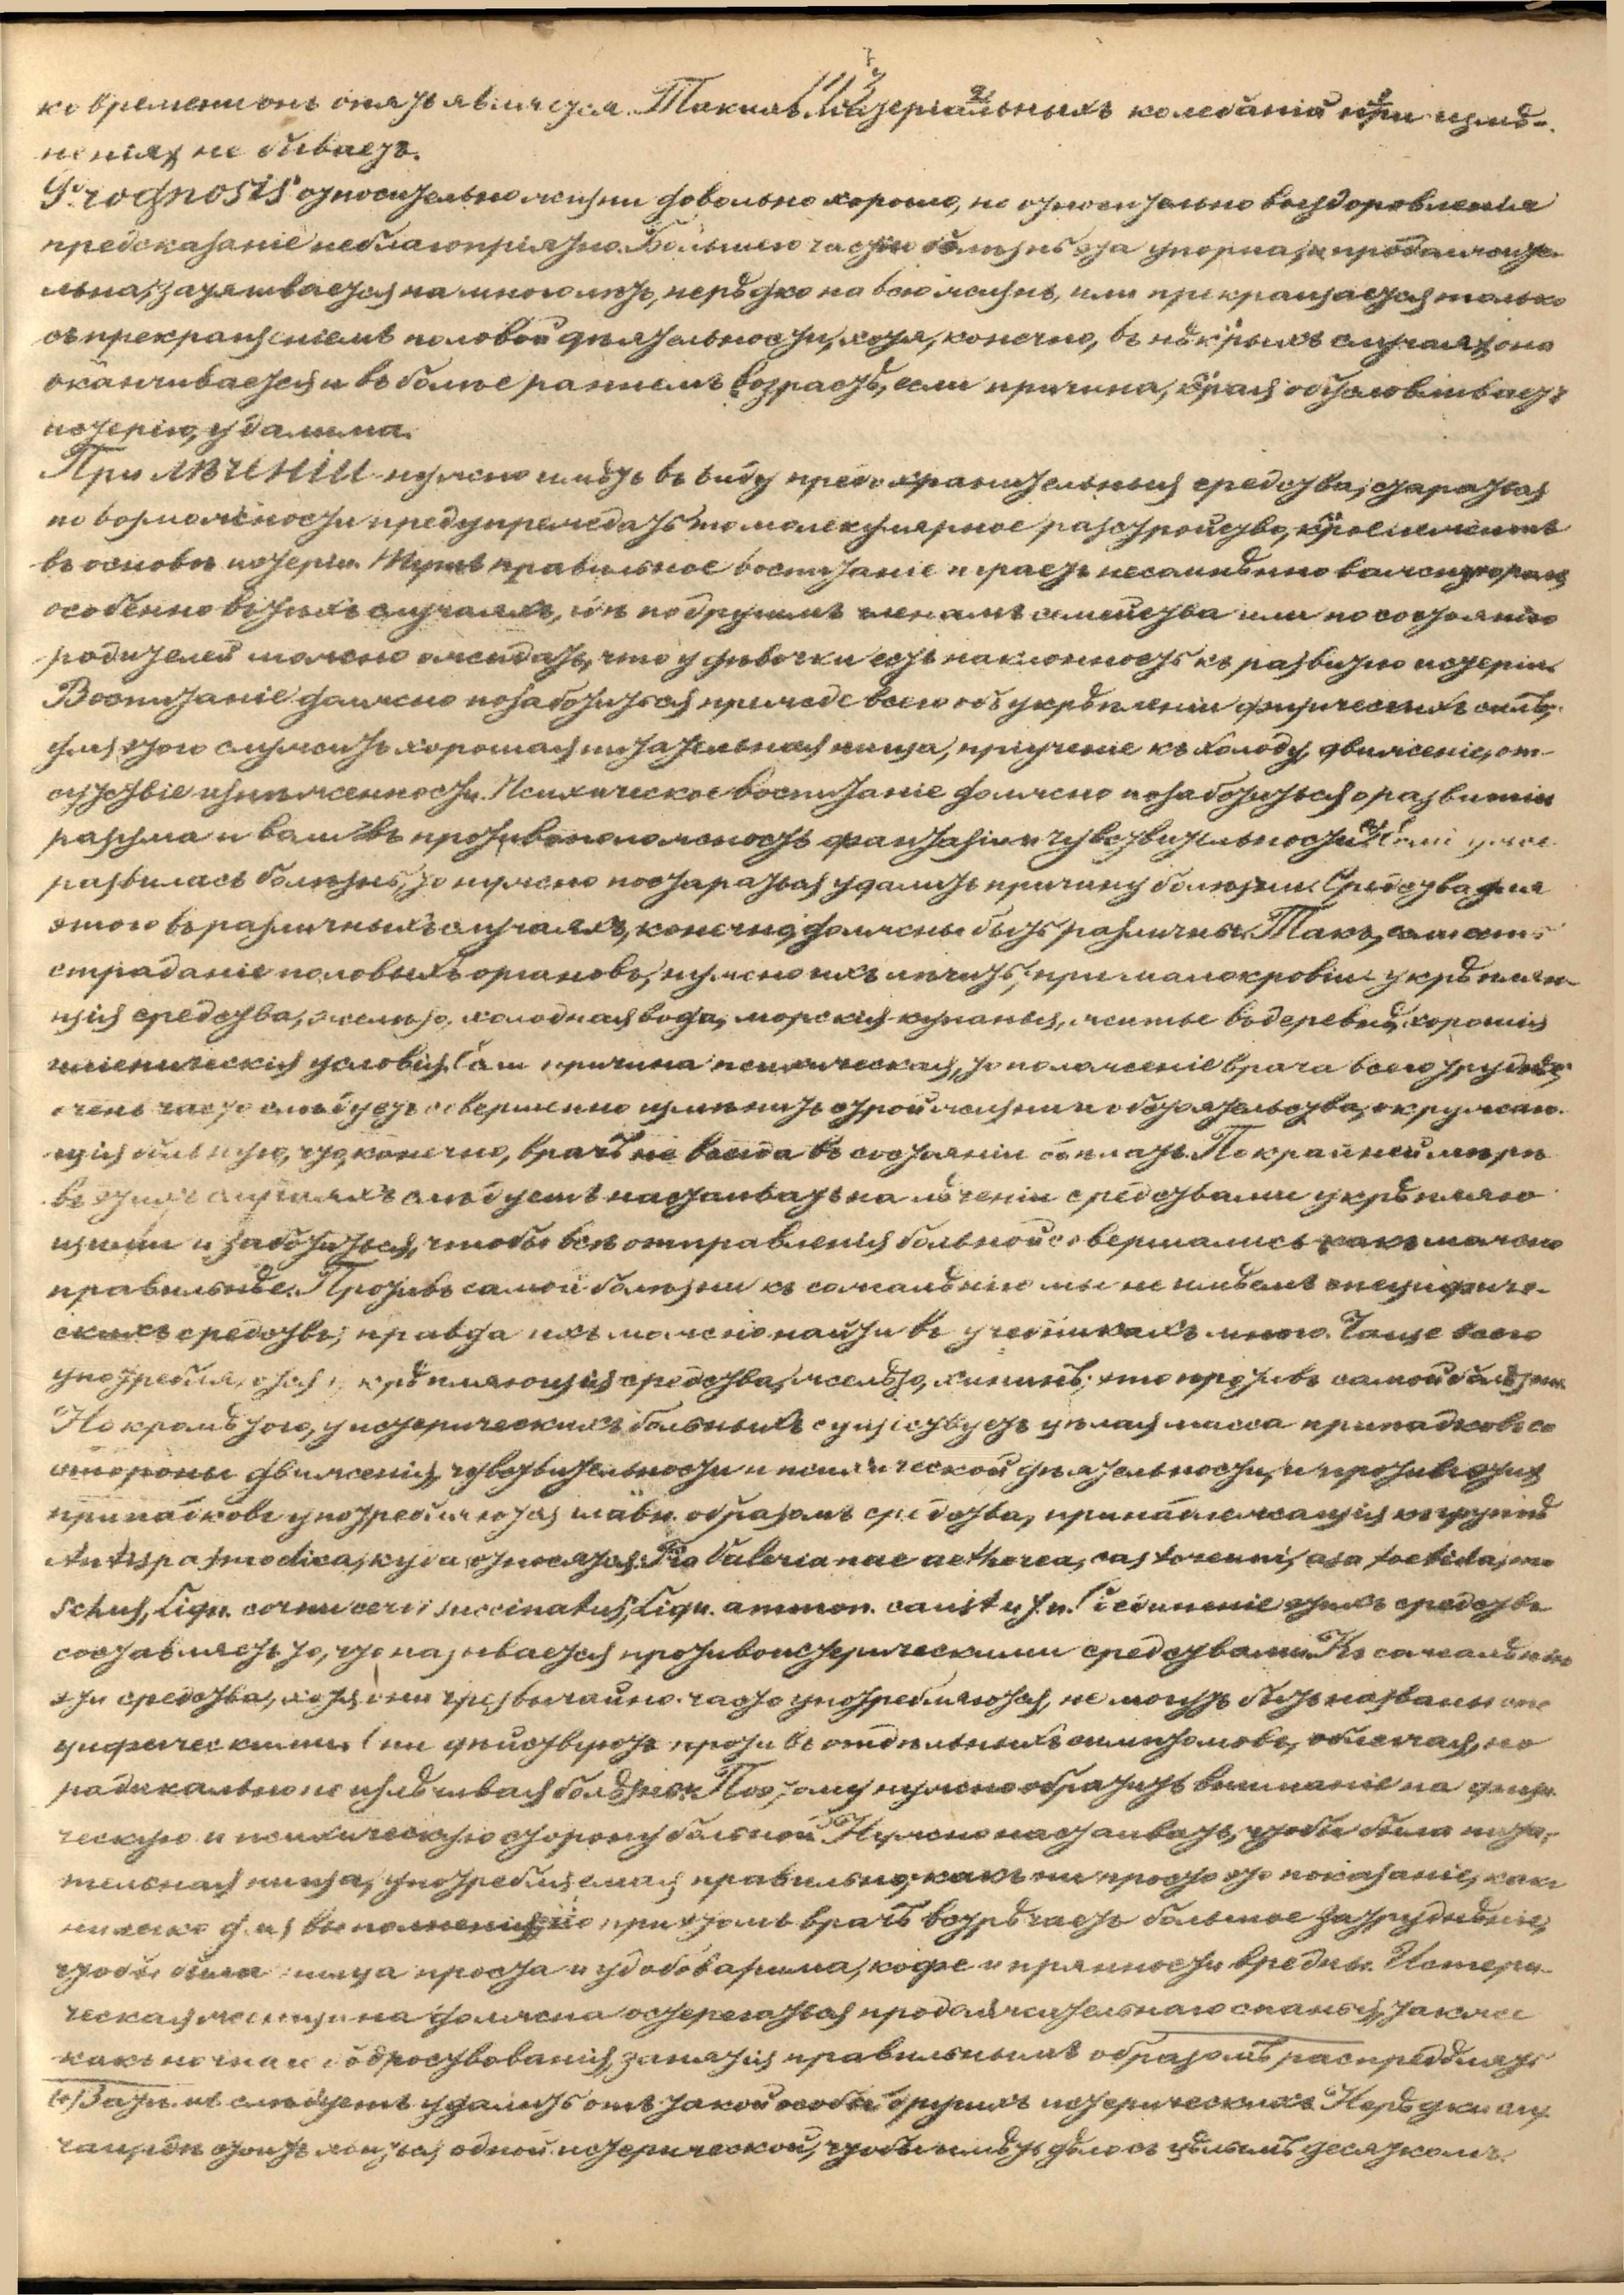 113
ко времени онъ опять является. Такихъ матеріальныхъ колебаній при измѣ-
неніях не бываетъ.
Prognosis относительно жизни довольно хорошо, но относительно выздоровленія
предсказаніе неблагопріятно. Большею частію болѣзнь эта упорна, и продолжите-
льна, затягивается на много лѣтъ, нерѣдко на всю жизнь, или прекращается только
съ прекращеніемъ половой дѣятельности, хотя, конечно, въ нѣкрыхъ случаях она
оканчивается и въ болѣе раннемъ возрастѣ, если причина, края обусловливаетъ
истерію, удалима.
При лѣченіи нужно имѣть въ виду предохранительныя средства, стараться
по возможности предупреждать то молекулярное разстройство, крое лежитъ
въ основѣ истеріи. Тутъ правильное воспитаніе играетъ несомнѣнно важную роль
особенно въ тѣхъ случаяхъ, гдѣ по другимъ членамъ семейства или по состоянію
родителей можно ожидать, что у дѣвочки есть наклонность къ развитію истеріи.
Воспитаніе должно позаботиться прежде всего объ укрѣпленіи физическихъ силъ,
для этого служитъ хорошая питательная пища, пріученіе къ холоду, движеніе, от-
сутствіе изнѣженности. Психическое воспитаніе должно позаботиться о развитіи
разума и воли въ противоположность фантазіи и чувствительности. Если уже
развилась болѣзнь, то нужно постараться удалить причину болѣзни. Средства для
этого въ различныхъ случаяхъ, конечно, должны быть различны. Такъ, если есть
страданіе половыхъ органовъ, нужно ихъ лѣчить, при малокровіи укрѣпляю-
щія средства, желѣзо, холодная вода, морскія купанья, житье въ деревнѣ, хорошія
гигіеническія условія. Если причина психическая, то положеніе врача всего труднѣе,
очень часто слѣдуетъ совершенно измѣнить строй жизни и обстоятельства, окружаю-
щія больную, что, конечно, врачъ не всегда въ состояніи сдѣлать. По крайней мѣрѣ
въ этихъ случаяхъ слѣдуетъ настаивать на лѣченіи средствами укрѣпляю
щими и заботиться, чтобы всѣ отправленія больной совершались какъ можно
правильнѣе. Противъ самой болѣзни къ сожалѣнію мы не имѣемъ специфиче-
скихъ средствъ; правда ихъ можно найти въ учебникахъ много. Чаще всего
употребляются укрѣпляющія средства, желѣзо, хининъ; это противъ самой болѣзни.
Но кромѣ того, у истерическихъ больныхъ существуетъ цѣлая масса припадковъ со
стороны движенія, чувствительности и психической дѣятельности, и противъ этих
припадковъ употребляются главн. образомъ средства, принадлежащія къ группѣ
Antispasmodica, куда относятся: Tra Valerianae aetherea, castoreum, asa foetida, mo
schus, liqu. cornu cervi succinatus, liqu. ammon. caust и т. п. Соединеніе этихъ средствъ
составляетъ то, что называется противоистерическими средствами. Къ сожалѣнію
эти средства, хотя они чрезвычайно часто употребляются, не могутъ быть названы спе
цифическими. Они дѣйствуютъ противъ отдѣльныхъ симптомовъ, облегчая, но
радикально не излѣчивая болѣзнь. Поэтому нужно обратить вниманіе на физи-
ческую и психическую сторону больной. Нужно настаивать, чтобы была пита-
тельная пища, употребляемая правильно; какъ ни просто это показаніе, какъ
ни легко для выполненія, но при этомъ врачъ встрѣчаетъ большое затрудненіе,
чтобы была пища проста и удобоварима, кофе и пряности вредны. Истери-
ческая женщина должна остерегаться продолжительнаго спанья, также
какъ ночнаго бодрствованія, занятія правильнымъ образомъ распредѣлять
(*) Затѣмъ слѣдуетъ удалить отъ такой особы другихъ истерическихъ. Нерѣдки слу
чаи, гдѣ стоитъ явиться одной истерической, чтобы имѣть дѣло съ цѣлымъ десяткомъ.